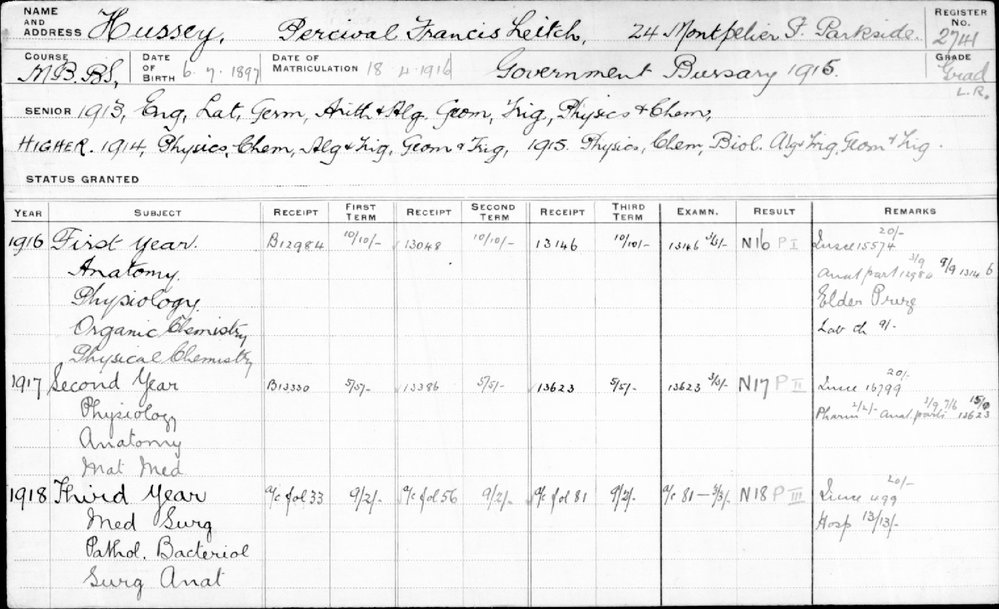 NAME AND ADDRESS Hussey, Percival Francis Leitch, 24 Montpelier St. Parkside. REGISTER No. 2741
COURSE M.B. B.S. DATE OF BIRTH 6.7.1897 DATE OF MATRICULATION 18 4.1916 Government Bursary 1915. GRADE Grad
L.R.
SENIOR 1913, Eng, Lat, Germ, Arith & Alg. Geom, Trig, Physics & Chem,
HIGHER. 1914, Physics, Chem, Alg & Trig, Geom & Trig, 1915. Physics, Chem, Biol. Alg & Trig, Geom & Trig.
STATUS GRANTED
YEAR SUBJECT RECEIPT FIRST TERM RECEIPT SECOND TERM RECEIPT THIRD TERM EXAMN. RESULT REMARKS
1916 First Year. B12984 10/10/- 13048 10/10/- 13146 10/10/- 13146 3/3/- N16 P I 20/- 15574
Anatomy. Anat part 3/9 12984 9/9 13146
Physiology. Elder Prize
Organic Chemistry Lab ch 9/-
Physical Chemistry
1917 Second Year B13330 5/5/- 13386 5/5/- 13623 5/5/- 13623 3/3/- N17 P II 20/- 16799
Physiology Pharm 2/2/- Anat. parts 3/9, 7/6 15/9 13623
Anatomy
Mat Med
1918 Third Year a/c fol 33 9/2/- a/c fol 56 9/2/- a/c fol 81 9/2/- a/c 81 - 3/3/- N18 P III 20/- 499
Med Surg Hosp 13/13/-
Pathol. Bacteriol
Surg Anat